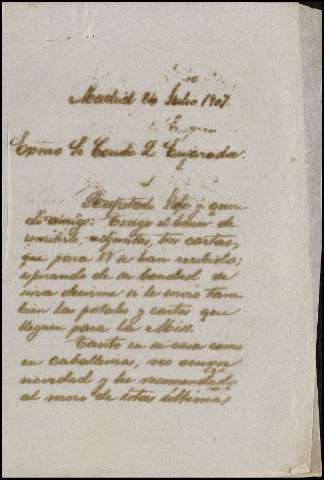 Madrid 24 Julio 1907.
Exmo Sr Conde D
Respetado Sr y queri
do amigo: Tengo el honor de
remitirle, adjuntas, tres cartas,
que para V. se han recibido;
esperando de su bondad se
sirva decirme si le envio tam
bien las postales y cartas que
lleguen para la Miss.
Tanto en su casa como
en caballerizas, no ocurre
novedad y he recomendado
al mozo de éstas últimas,